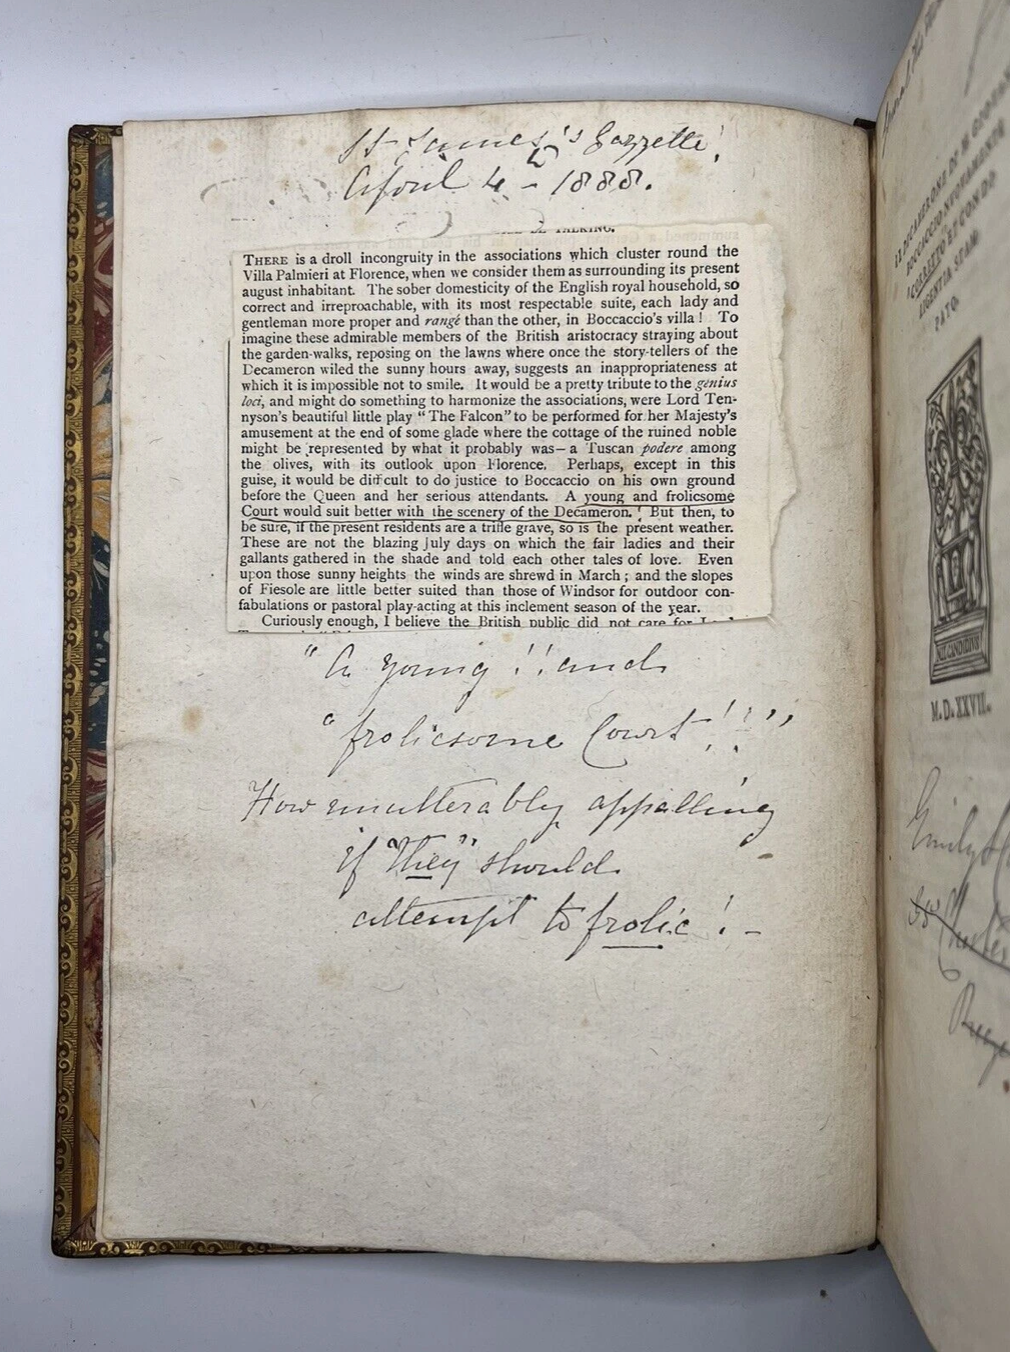 St James's Gazzette!
April 4 - 1888.
THERE is a droll incongruity in the associations which cluster round the
Villa Palmieri at Florence, when we consider them as surrounding its present
august inhabitant. The sober domesticity of the English royal household, so
correct and irreproachable, with its most respectable suite, each lady and
gentleman more proper and rangé than the other, in Boccaccio's villa! To
imagine these admirable members of the British aristocracy straying about
the garden-walks, reposing on the lawns where once the story-tellers of the
Decameron wiled the sunny hours away, suggests an inappropriateness at
which it is impossible not to smile. It would be a pretty tribute to the genius
loci, and might do something to harmonize the associations, were Lord Ten-
nyson's beautiful little play "The Falcon" to be performed for her Majesty's
amusement at the end of some glade where the cottage of the ruined noble
might be represented by what it probably was—a Tuscan podere among
the olives, with its outlook upon Florence. Perhaps, except in this
guise, it would be difficult to do justice to Boccaccio on his own ground
before the Queen and her serious attendants. A young and frolicsome
Court would suit better with the scenery of the Decameron. But then, to
be sure, if the present residents are a trifle grave, so is the present weather.
These are not the blazing July days on which the fair ladies and their
gallants gathered in the shade and told each other tales of love. Even
upon those sunny heights the winds are shrewd in March; and the slopes
of Fiesole are little better suited than those of Windsor for outdoor con-
fabulations or pastoral play-acting at this inclement season of the year.
Curiously enough, I believe the British public did not care for
"A young!! and
"frolicsome Court!!!"
How unutterably appalling
if "They" should
attempt to frolic! -
IL DECAMERONE DI M. GIOVAN
BOCCACCIO NUOVAMENTE
CORRETTO ET CON DI
LIGENTIA STAM
PATO.
M.D.XXVII.
Emily